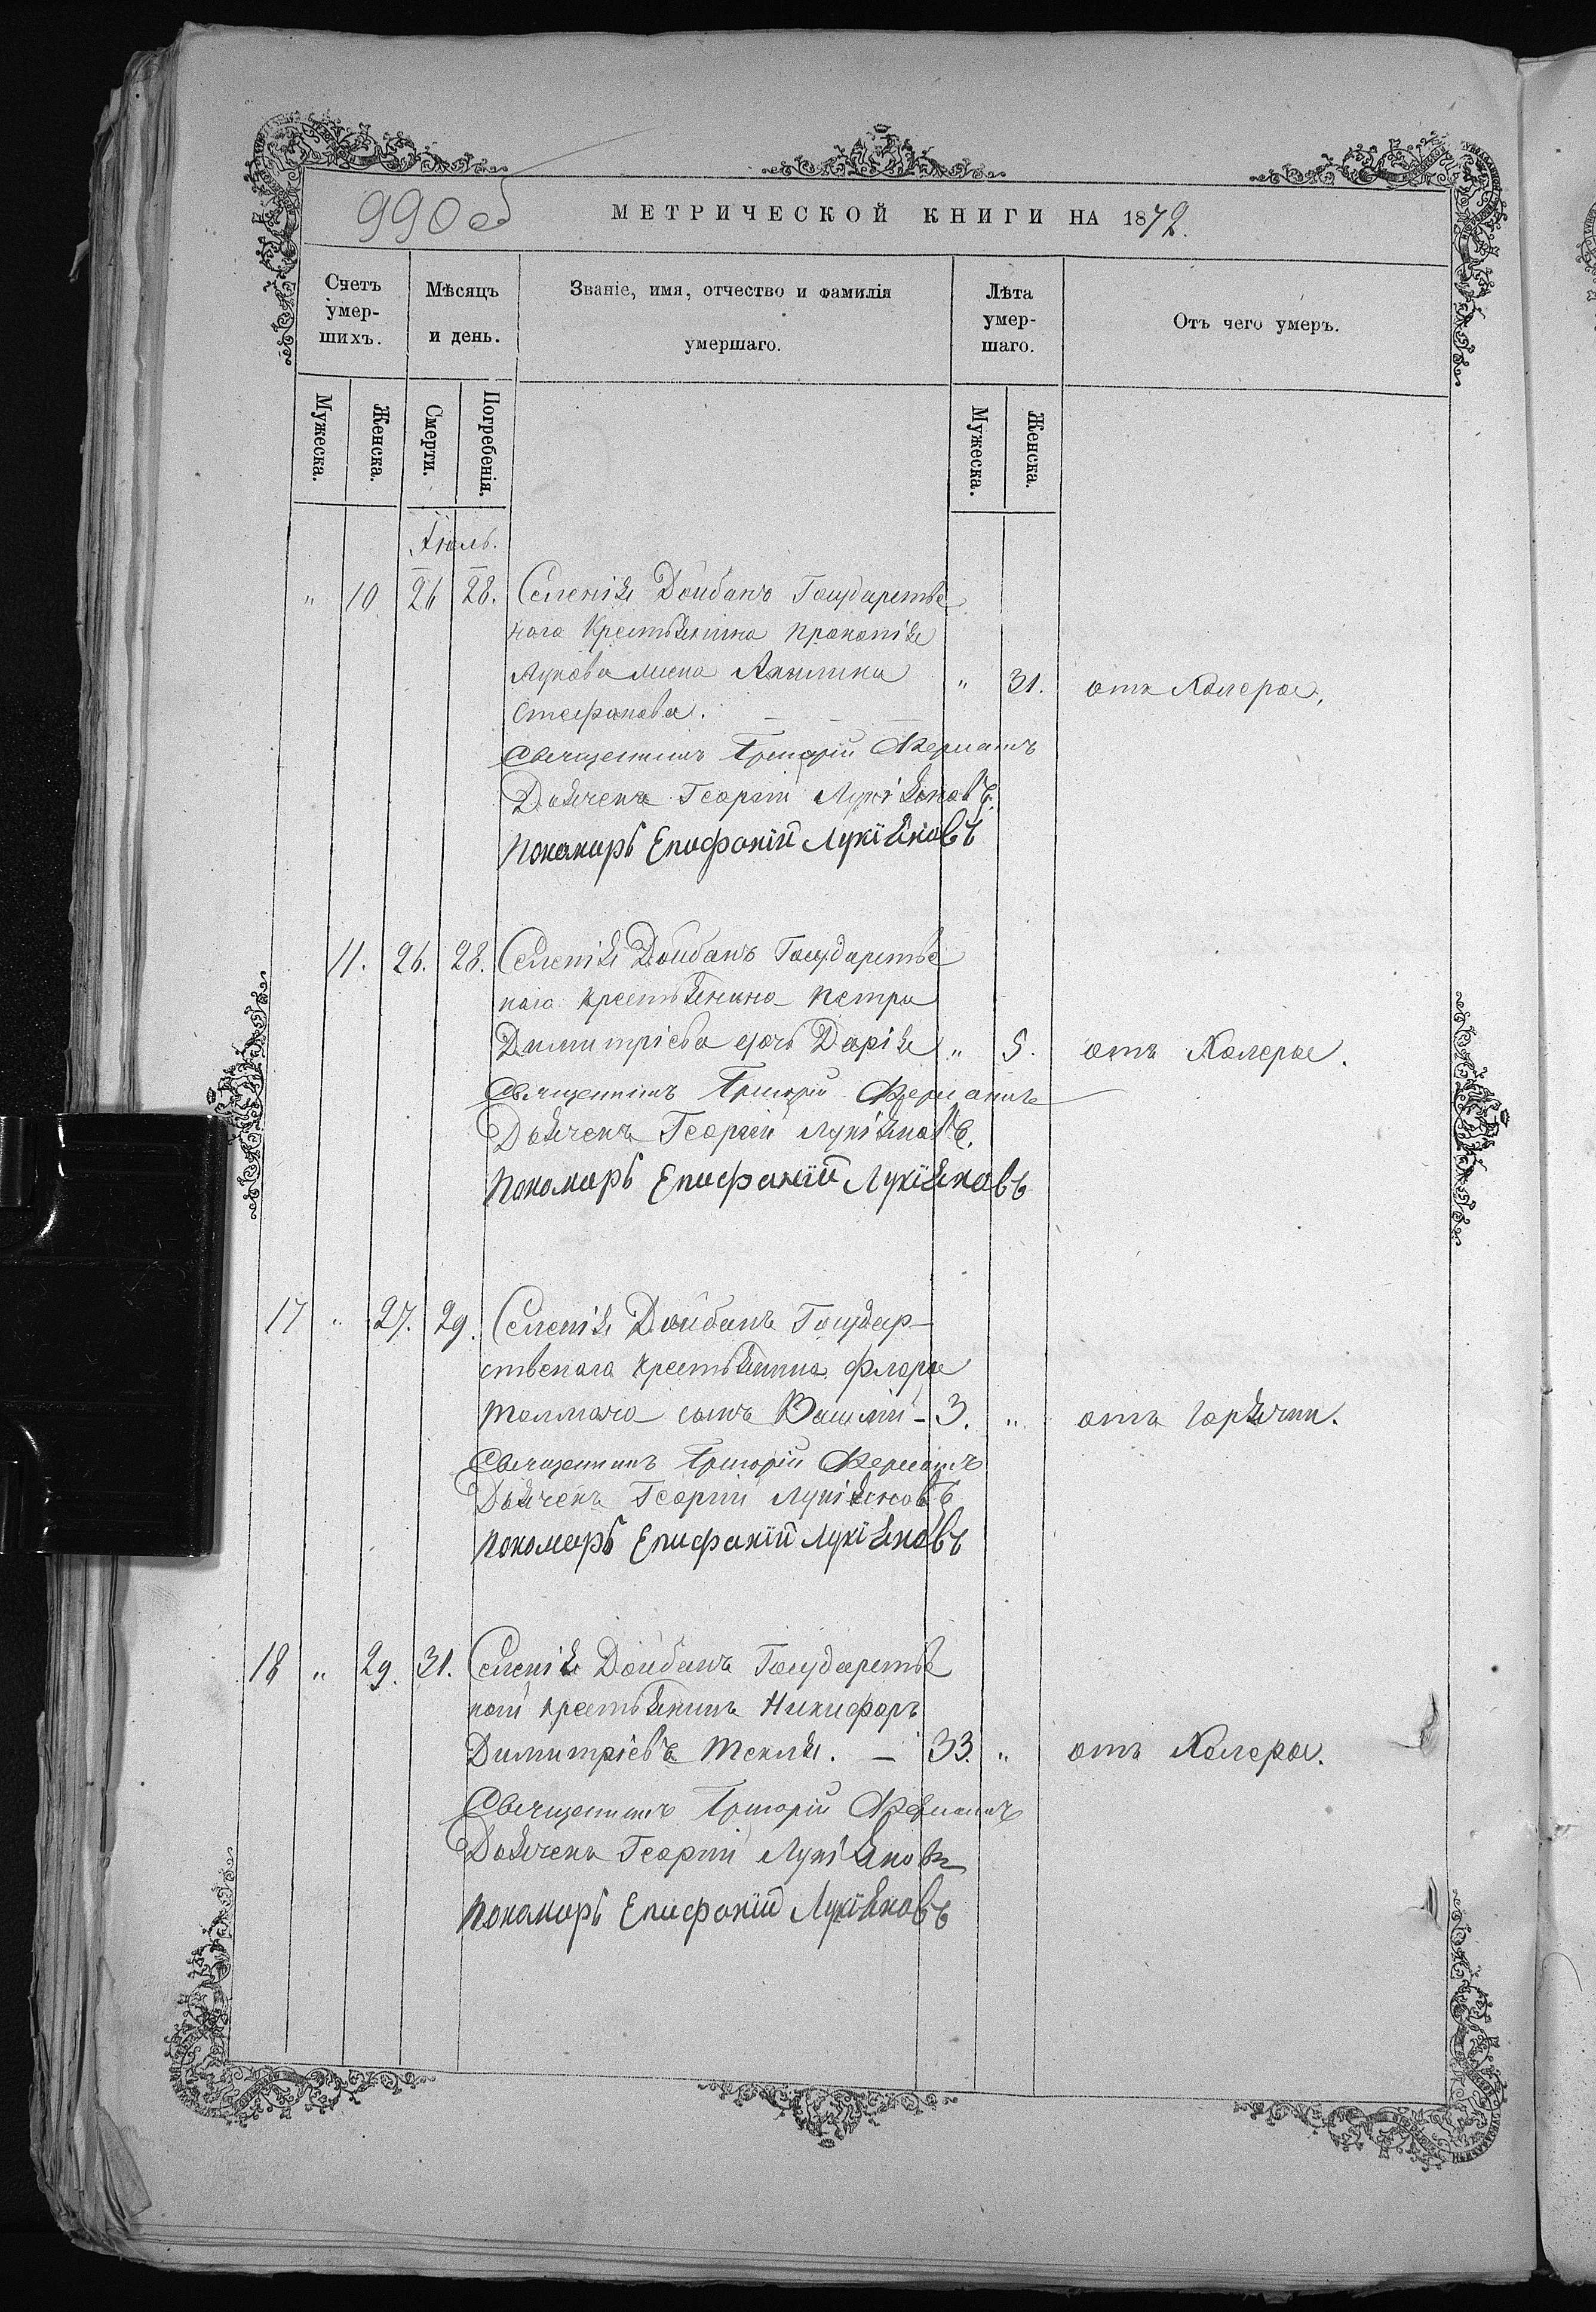 990об
МЕТРИЧЕСКОЙ КНИГИ НА 1872.
Счетъ умер- шихъ.
Мѣсяцъ и день.
Званіе, имя, отчество и фамилія умершаго.
Лѣта умер- шаго.
Отъ чего умеръ.
Мужеска. Женска. Смерти. Погребенія. Мужеска. Женска.
Іюль.
" 10 26 28. Селенія Дойбанъ Государстве
наго Крестьянина Прокопія
Лукова жена Акилина " 31. отъ Холеры.
Стефанова. — — —
Священникъ Григорій
Дьячекъ Георгій Лукіяновъ.
Пономарь Епифаній Лукіяновъ
11. 26. 28. Селенія Дойбанъ Государстве
наго крестьянина Петра
Димитріева дочь Дарія " 5. отъ Холеры.
Священникъ Григорій
Дьячекъ Георгій Лукіяновъ.
Пономарь Епифаній Лукіяновъ
17 " 27. 29. Селенія Дойбанъ Государ-
ственаго крестьянина Флора
Толмача сынъ Василій - 3. " отъ горячки.
Священникъ Григорій
Дьячекъ Георгій Лукіяновъ
Пономарь Епифаній Лукіяновъ
18 " 29. 31. Селенія Дойбанъ Государстве
ной крестьянинъ Никифоръ
Димитріевъ Текля. — 33. " отъ Холеры.
Священникъ Григорій
Дьячекъ Георгій Лукіяновъ
Пономарь Епифаній Лукіяновъ